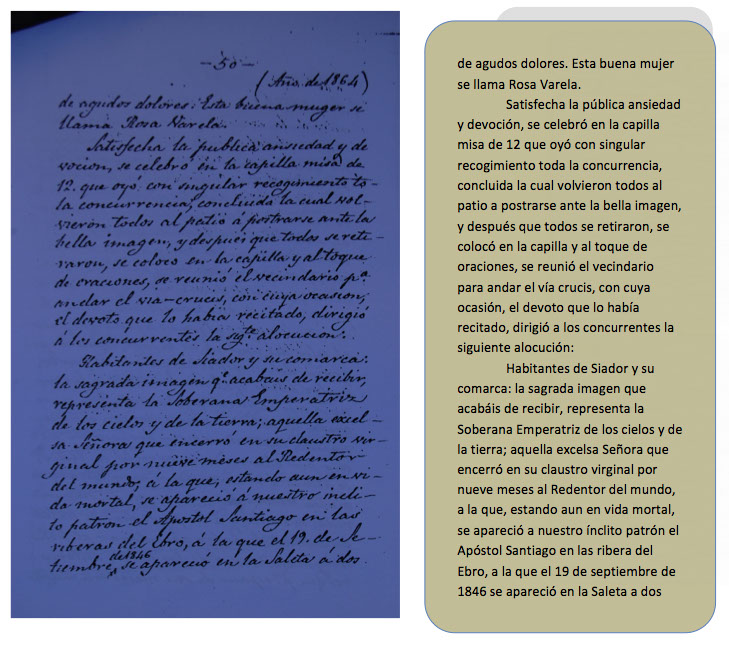 —50—
(Año de 1864)
de agudos dolores: Esta buena muger se
llama Rosa Varela.
Satisfecha la publica ansiedad y de
vocion, se celebró en la capilla misa de
12. que oyó con singular recogimiento to-
la concurrencia, concluida la cual vol-
vieron todos al patio á postrarse ante la
bella imagen, y despues que todos se reti-
raron, se colocó en la capilla y al toque
de oraciones, se reunió el vecindario pª
andar el via-crucis, con cuya ocasion,
el devoto que lo habia recitado, dirigió
á los concurrentes la sigte alocucion:
Habitantes de Siador y su comarca:
la sagrada imagen q. acabais de recibir,
representa la Soberana Emperatriz
de los cielos y de la tierra; aquella excel-
sa Señora que encerró en su claustro vir-
ginal por nueve meses al Redentor
del mundo; á la que, estando aun en vi-
da mortal, se apareció á nuestro incli-
to patron el Apostol Santiago en las
riberas del Ebro, á la que el 19. de Se-
tiembre de 1846 se apareció en la Saleta á dos
de agudos dolores. Esta buena mujer
se llama Rosa Varela.
Satisfecha la pública ansiedad
y devoción, se celebró en la capilla
misa de 12 que oyó con singular
recogimiento toda la concurrencia,
concluida la cual volvieron todos al
patio a postrarse ante la bella imagen,
y después que todos se retiraron, se
colocó en la capilla y al toque de
oraciones, se reunió el vecindario
para andar el vía crucis, con cuya
ocasión, el devoto que lo había
recitado, dirigió a los concurrentes la
siguiente alocución:
Habitantes de Siador y su
comarca: la sagrada imagen que
acabáis de recibir, representa la
Soberana Emperatriz de los cielos y de
la tierra; aquella excelsa Señora que
encerró en su claustro virginal por
nueve meses al Redentor del mundo,
a la que, estando aun en vida mortal,
se apareció a nuestro ínclito patrón el
Apóstol Santiago en las ribera del
Ebro, a la que el 19 de septiembre de
1846 se apareció en la Saleta a dos